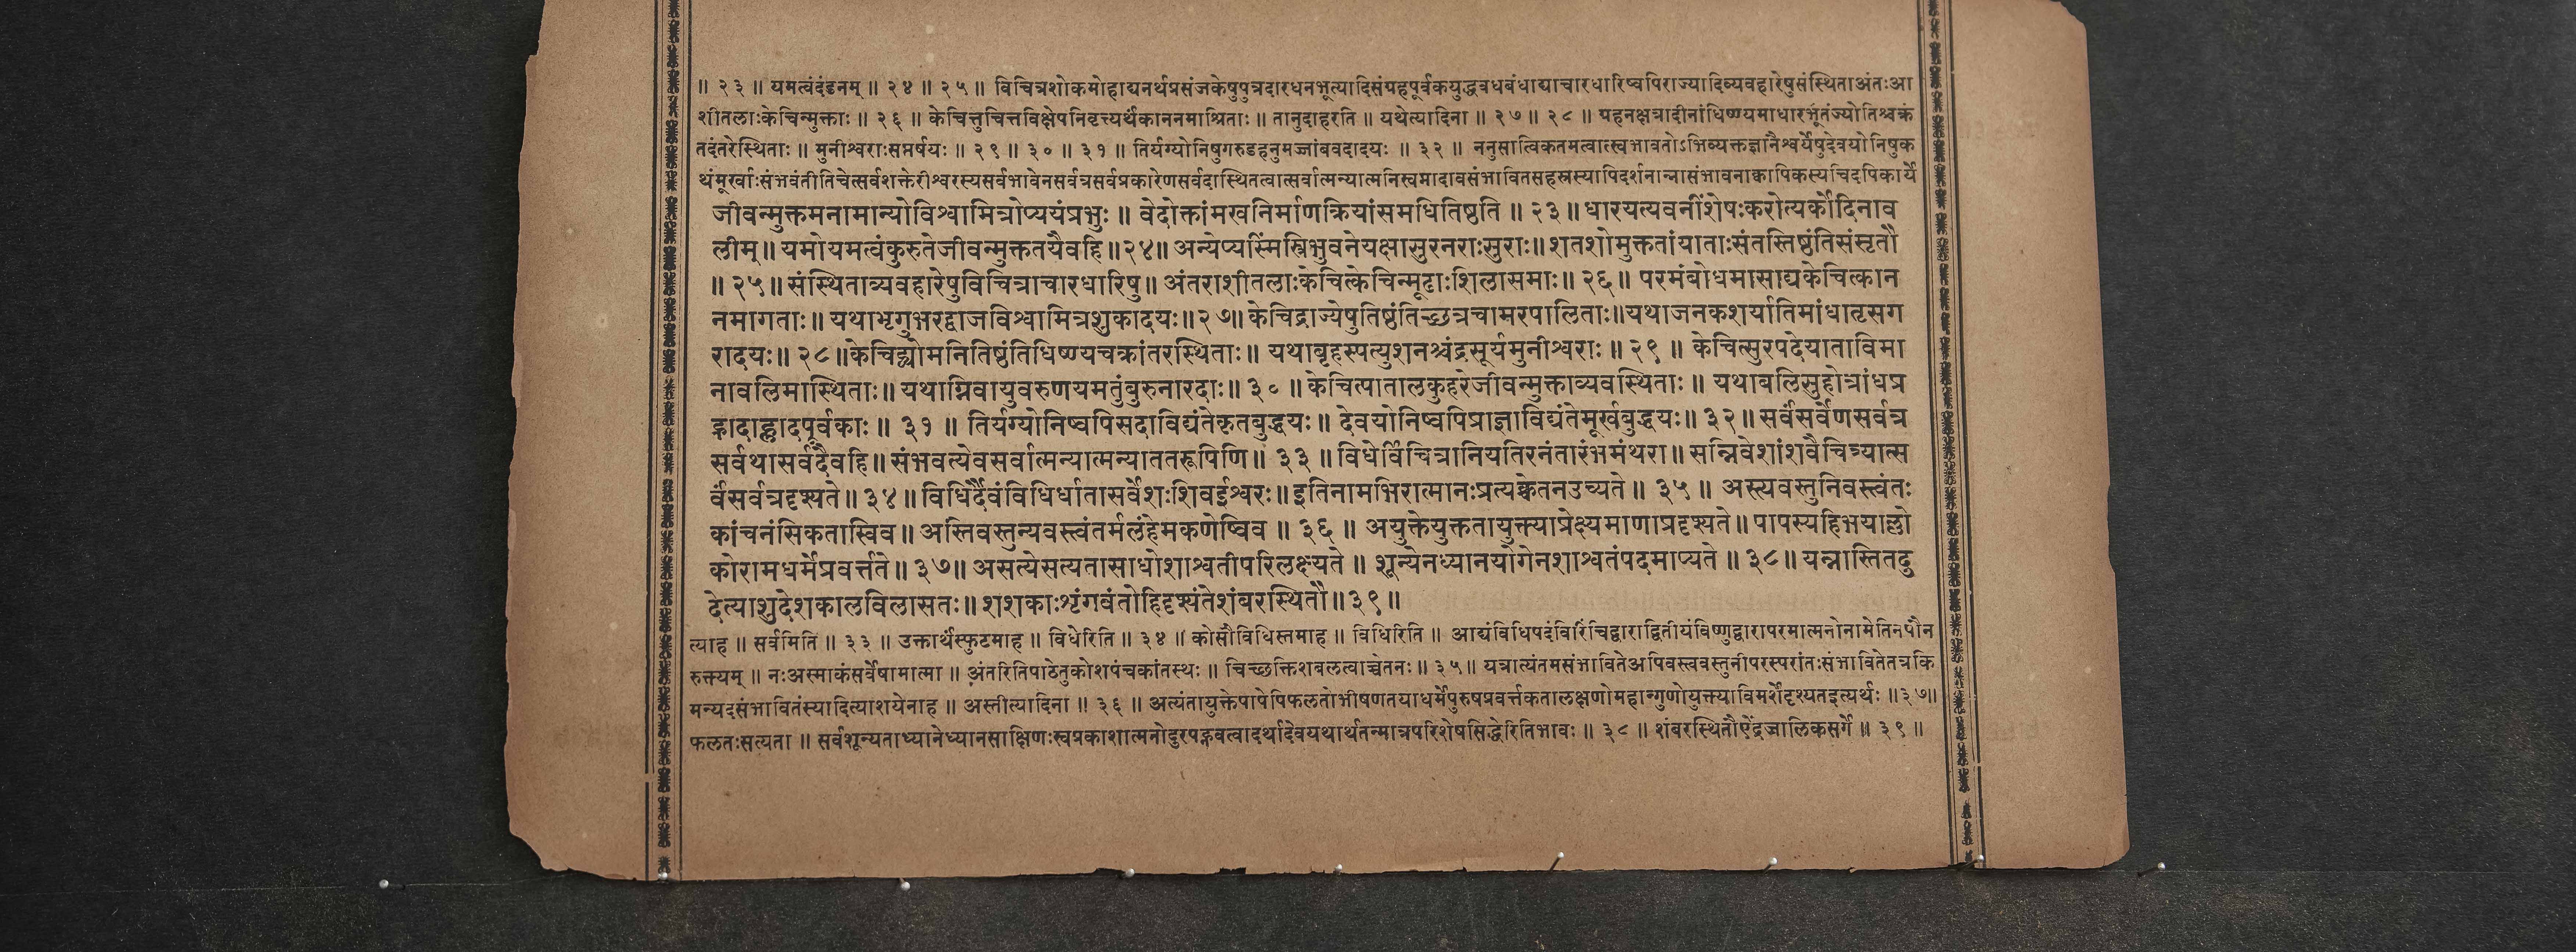 ॥ २३ ॥ यमत्वंदंडनम् ॥ २४ ॥ २५ ॥ विचित्रशोकमोहाद्यनर्थप्रसंजकेषुपुत्रदारधनभृत्यादिसंग्रहपूर्वकयुद्धवधबंधाद्याचारधारिष्वपिराज्यादिव्यवहारेषुसंस्थिताअंतःआ
शीतलाःकेचिन्मुक्ताः ॥ २६ ॥ केचित्तुचित्तविक्षेपनिवृत्त्यर्थंकाननमाश्रिताः ॥ तानुदाहरति ॥ यथेत्यादिना ॥ २७ ॥ २८ ॥ ग्रहनक्षत्रादीनांधिष्ण्यमाधारभूतंज्योतिश्चक्रं
तदंतरेस्थिताः ॥ मुनीश्वराःसप्तर्षयः ॥ २९ ॥ ३० ॥ ३१ ॥ तिर्यग्योनिषुगरुडहनुमज्जांबवदादयः ॥ ३२ ॥ ननुसात्विकतमत्वात्स्वभावतोऽभिव्यक्तज्ञानैश्वर्येषुदेवयोनिषुक
थंमूर्खाःसंभवंतीतिचेत्सर्वशक्तेरीश्वरस्यसर्वभावेनसर्वत्रसर्वप्रकारेणसर्वदास्थितत्वात्सर्वात्मन्यात्मनिस्वमादावसंभावितसहस्रस्यापिदर्शनान्नासंभावनाक्वापिकस्यचिदपिकार्ये
जीवन्मुक्तमनामान्योविश्वामित्रोप्ययंप्रभुः ॥ वेदोक्तांमखनिर्माणक्रियांसमधितिष्ठति ॥ २३ ॥ धारयत्यवनींशेषःकरोत्यर्कोदिनाव
लीम् ॥ यमोयमत्वंकुरुतेजीवन्मुक्ततयैवहि ॥ २४ ॥ अन्येप्यस्मिंस्त्रिभुवनेयक्षासुरनराःसुराः ॥ शतशोमुक्ततांयाताःसंतस्तिष्ठंतिसंसृतौ
॥ २५ ॥ संस्थिताव्यवहारेषुविचित्राचारधारिषु ॥ अंतराशीतलाःकेचित्केचिन्मूढाःशिलासमाः ॥ २६ ॥ परमंबोधमासाद्यकेचित्कान
नमागताः ॥ यथाभृगुभरद्वाजविश्वामित्रशुकादयः ॥ २७ ॥ केचिद्राज्येषुतिष्ठंतिच्छत्रचामरपालिताः ॥ यथाजनकशर्यातिमांधातृसग
रादयः ॥ २८ ॥ केचिद्व्योमनितिष्ठंतिधिष्ण्यचक्रांतरस्थिताः ॥ यथाबृहस्पत्युशनश्चंद्रसूर्यमुनीश्वराः ॥ २९ ॥ केचित्सुरपदेयाताविमा
नावलिमास्थिताः ॥ यथाग्निवायुवरुणयमतुंबुरुनारदाः ॥ ३० ॥ केचित्पातालकुहरेजीवन्मुक्ताव्यवस्थिताः ॥ यथाबलिसुहोत्रांधप्र
ह्रादाह्लादपूर्वकाः ॥ ३१ ॥ तिर्यग्योनिष्वपिसदाविद्यंतेकृतबुद्धयः ॥ देवयोनिष्वपिप्राज्ञाविद्यंतेमूर्खबुद्धयः ॥ ३२ ॥ सर्वंसर्वेणसर्वत्र
सर्वथासर्वदैवहि ॥ संभवत्येवसर्वात्मन्यात्मन्याततरूपिणि ॥ ३३ ॥ विधेर्विचित्रानियतिरनंतारंभमंथरा ॥ सन्निवेशांशवैचित्र्यात्स
र्वंसर्वत्रदृश्यते ॥ ३४ ॥ विधिर्दैवंविधिर्धातासर्वेशःशिवईश्वरः ॥ इतिनामभिरात्मानःप्रत्यक्चेतनउच्यते ॥ ३५ ॥ अस्त्यवस्तुनिवस्त्वंतः
कांचनंसिकतास्विव ॥ अस्तिवस्तुन्यवस्त्वंतर्मलंहेमकणेष्विव ॥ ३६ ॥ अयुक्तेयुक्ततायुक्त्याप्रेक्ष्यमाणाप्रदृश्यते ॥ पापस्यहिभयाल्लो
कोरामधर्मेप्रवर्त्तते ॥ ३७ ॥ असत्येसत्यतासाधोशाश्वतीपरिलक्ष्यते ॥ शून्येनध्यानयोगेनशाश्वतंपदमाप्यते ॥ ३८ ॥ यन्नास्तितदु
देत्याशुदेशकालविलासतः ॥ शशकाःशृंगवंतोहिदृश्यंतेशंबरस्थितौ ॥ ३९ ॥
त्याह ॥ सर्वमिति ॥ ३३ ॥ उक्तार्थंस्फुटमाह ॥ विधेरिति ॥ ३४ ॥ कोसौविधिस्तमाह ॥ विधिरिति ॥ आद्यंविधिपदंविरिंचिद्वाराद्वितीयंविष्णुद्वारापरमात्मनोनामेतिनपौन
रुक्त्यम् ॥ नःअस्माकंसर्वेषामात्मा ॥ अंतरितिपाठेतुकोशपंचकांतस्थः ॥ चिच्छक्तिशबलत्वाच्चेतनः ॥ ३५ ॥ यत्रात्यंतमसंभावितेअपिवस्त्ववस्तुनीपरस्परांतःसंभावितेतत्रकि
मन्यदसंभावितंस्यादित्याशयेनाह ॥ अस्तीत्यादिना ॥ ३६ ॥ अत्यंतायुक्तेपापेपिफलतोभीषणतयाधर्मेपुरुषप्रवर्त्तकतालक्षणोमहान्गुणोयुक्त्याविमर्शेदृश्यतइत्यर्थः ॥ ३७ ॥
फलतःसत्यता ॥ सर्वशून्यताध्यानेध्यानसाक्षिणःस्वप्रकाशात्मनोदुरपह्नवत्वादर्थादेवयथार्थतन्मात्रपरिशेषसिद्धेरितिभावः ॥ ३८ ॥ शंबरस्थितौऐंद्रजालिकसर्गे ॥ ३९ ॥